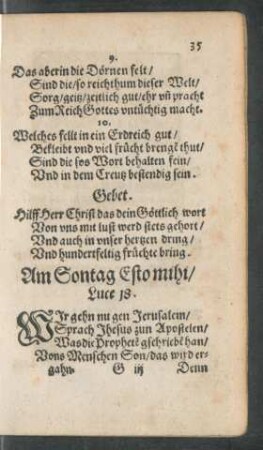 35
9.
Das aber in die Dörnen felt/
Sind die/so reichthum dieser Welt/
Sorg/geitz/zeitlich gut/ehr vñ pracht
Zum Reich Gottes vntüchtig macht.
10.
Welches fellt in ein Erdreich gut/
Bekleibt vnd viel frücht brengẽ thut/
Sind die sos Wort behalten fein/
Vnd in dem Creutz bestendig sein.
Gebet.
Hilff Herr Christ das dein Göttlich wort
Von vns mit lust werd stets gehort/
Vnd auch in vnser hertzen dring/
Vnd hundertfeltig früchte bring.
Am Sontag Esto mihi/
Luce 18.
WIr gehn nu gen Jerusalem/
Sprach Jhesus zun Apostelen/
Was die Prophetẽ gschriebẽ han/
Vons Menschen Son/das wird er-
gahn. G iij Denn